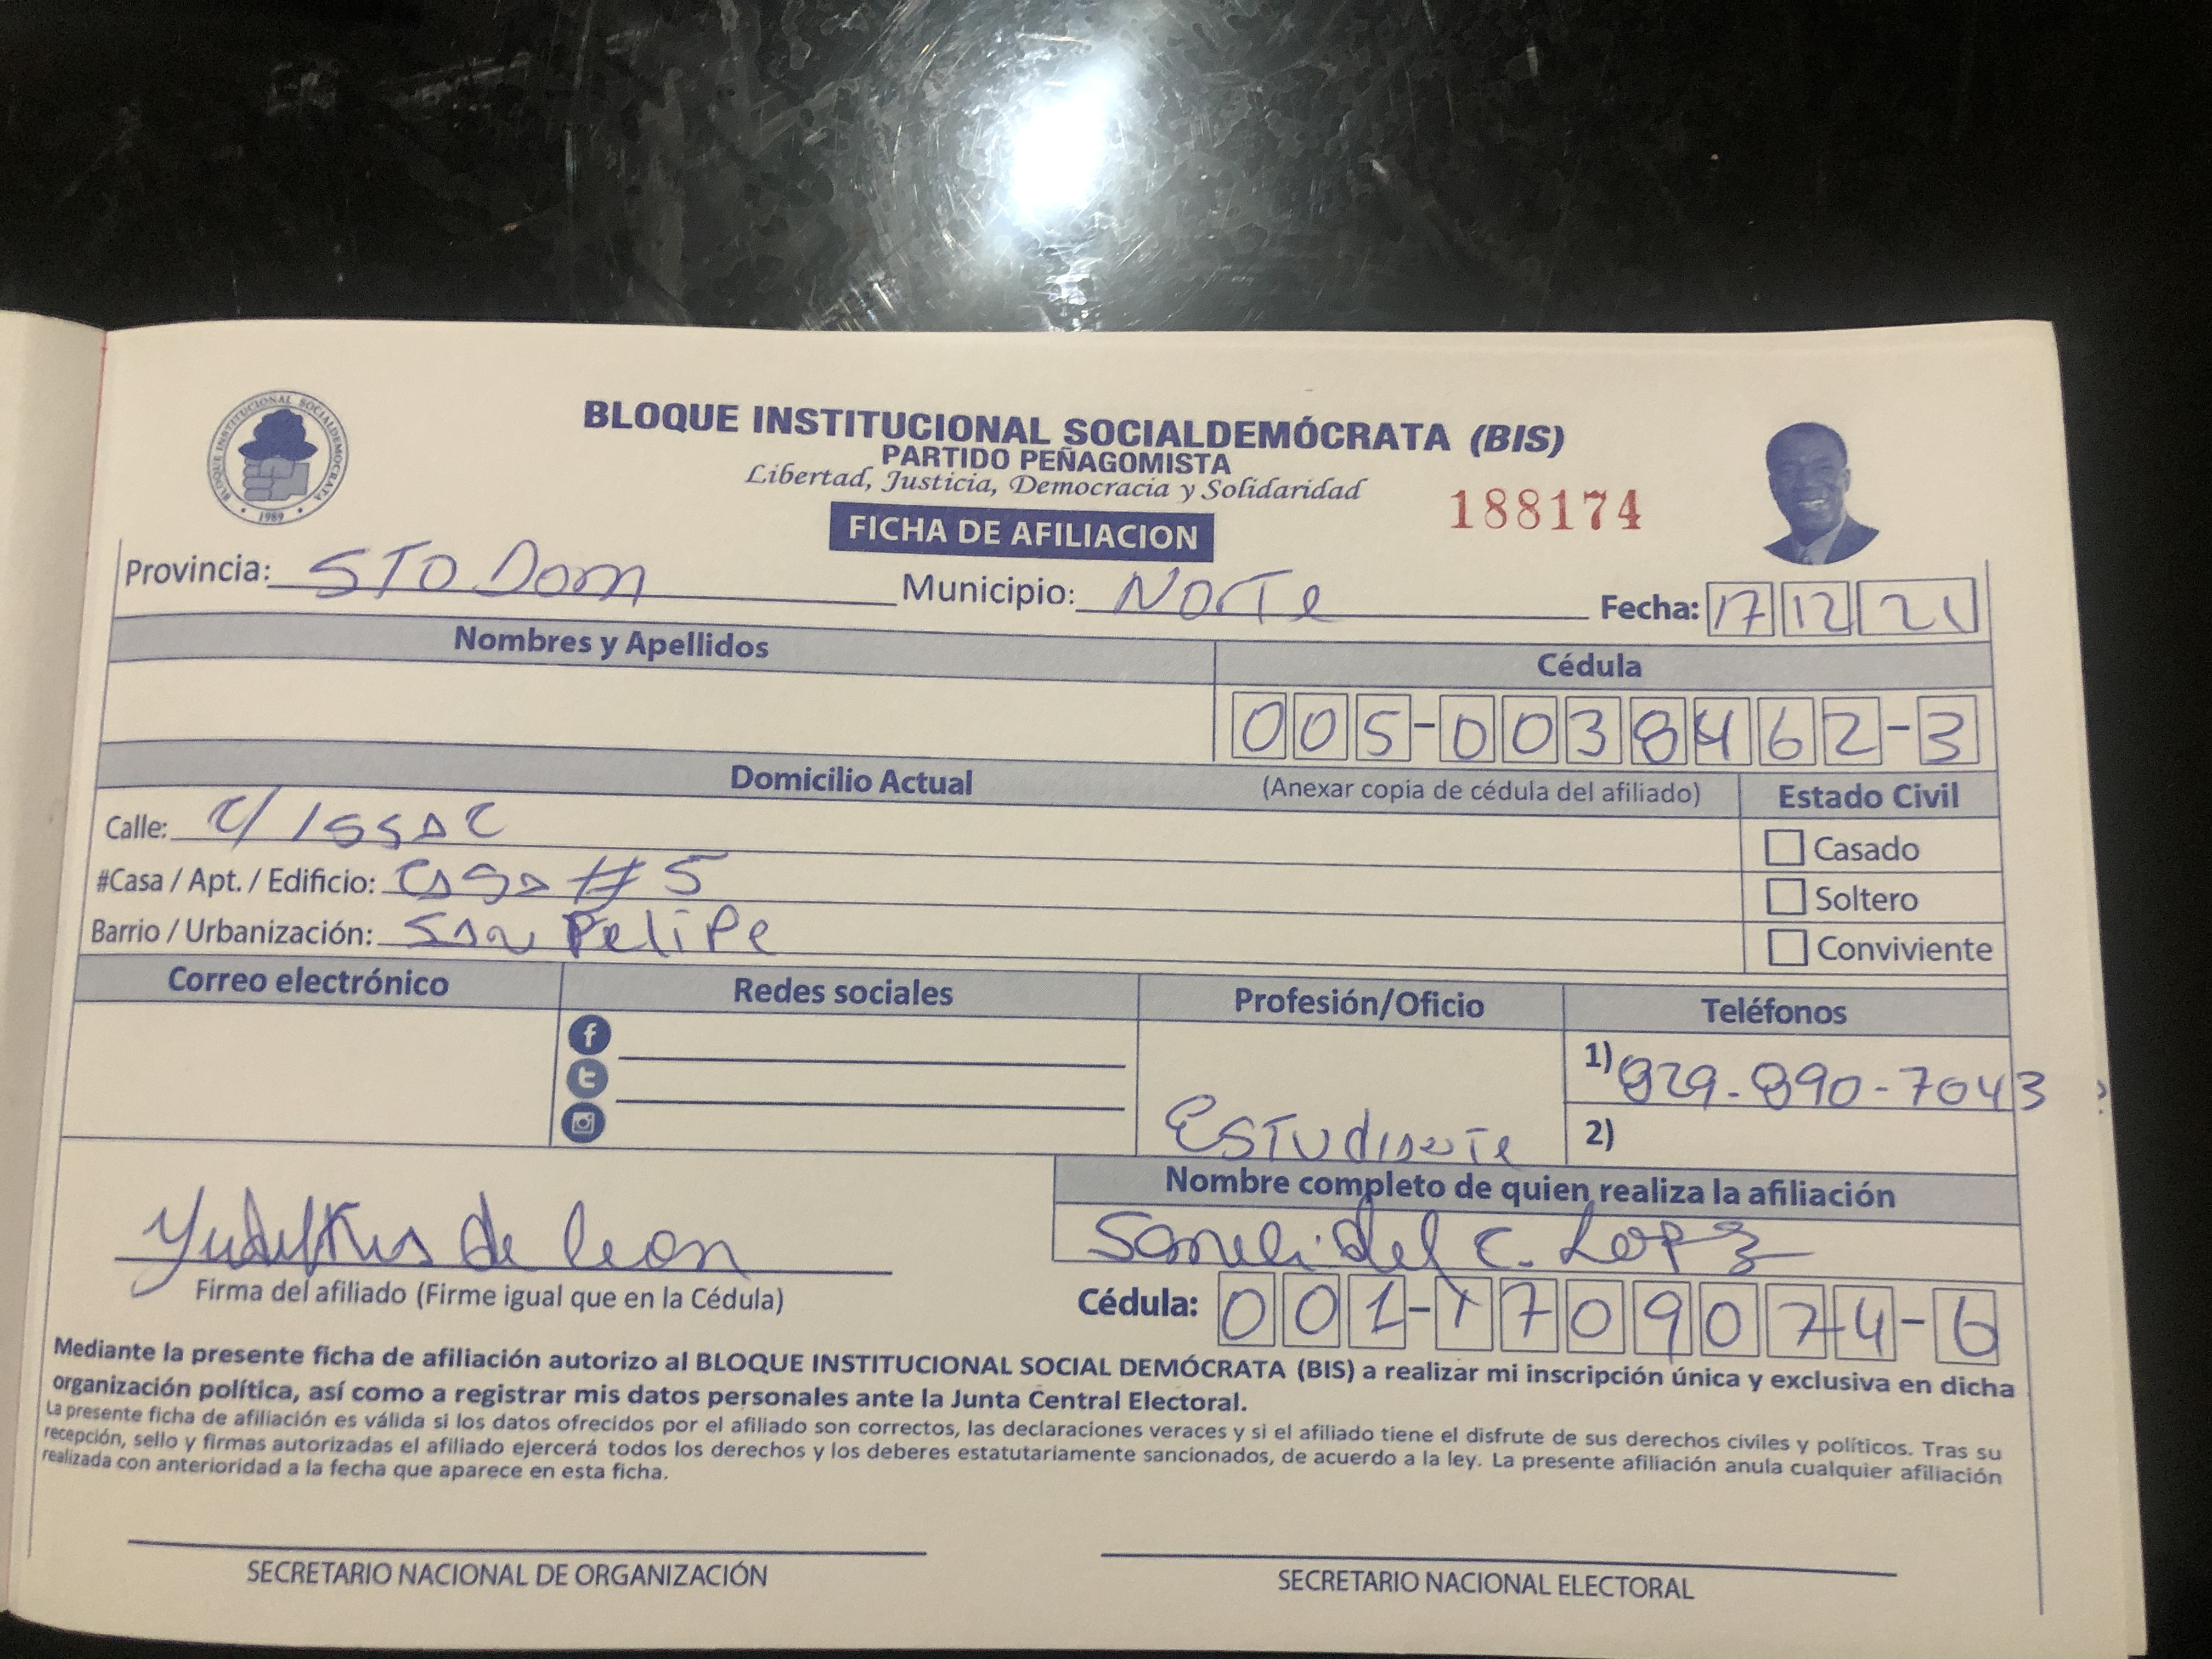 BLOQUE INSTITUCIONAL SOCIALDEMÓCRATA
1989
BLOQUE INSTITUCIONAL SOCIALDEMÓCRATA (BIS)
PARTIDO PEÑAGOMISTA
Libertad, Justicia, Democracia y Solidaridad
188174
FICHA DE AFILIACION
Provincia: STO Dom Municipio: Norte Fecha: 17 12 21
Nombres y Apellidos Cédula
005-0038462-3
Domicilio Actual (Anexar copia de cédula del afiliado) Estado Civil
Calle: C/ Issac
Casado
#Casa / Apt. / Edificio: Casa #5
Soltero
Barrio / Urbanización: San Felipe
Conviviente
Correo electrónico Redes sociales Profesión/Oficio Teléfonos
1) 829-890-7043
Estudiante 2)
Nombre completo de quien realiza la afiliación
de leon del C. Lopez
Firma del afiliado (Firme igual que en la Cédula) Cédula: 001-1709074-6
Mediante la presente ficha de afiliación autorizo al BLOQUE INSTITUCIONAL SOCIAL DEMÓCRATA (BIS) a realizar mi inscripción única y exclusiva en dicha
organización política, así como a registrar mis datos personales ante la Junta Central Electoral.
La presente ficha de afiliación es válida si los datos ofrecidos por el afiliado son correctos, las declaraciones veraces y si el afiliado tiene el disfrute de sus derechos civiles y políticos. Tras su
recepción, sello y firmas autorizadas el afiliado ejercerá todos los derechos y los deberes estatutariamente sancionados, de acuerdo a la ley. La presente afiliación anula cualquier afiliación
realizada con anterioridad a la fecha que aparece en esta ficha.
SECRETARIO NACIONAL DE ORGANIZACIÓN SECRETARIO NACIONAL ELECTORAL